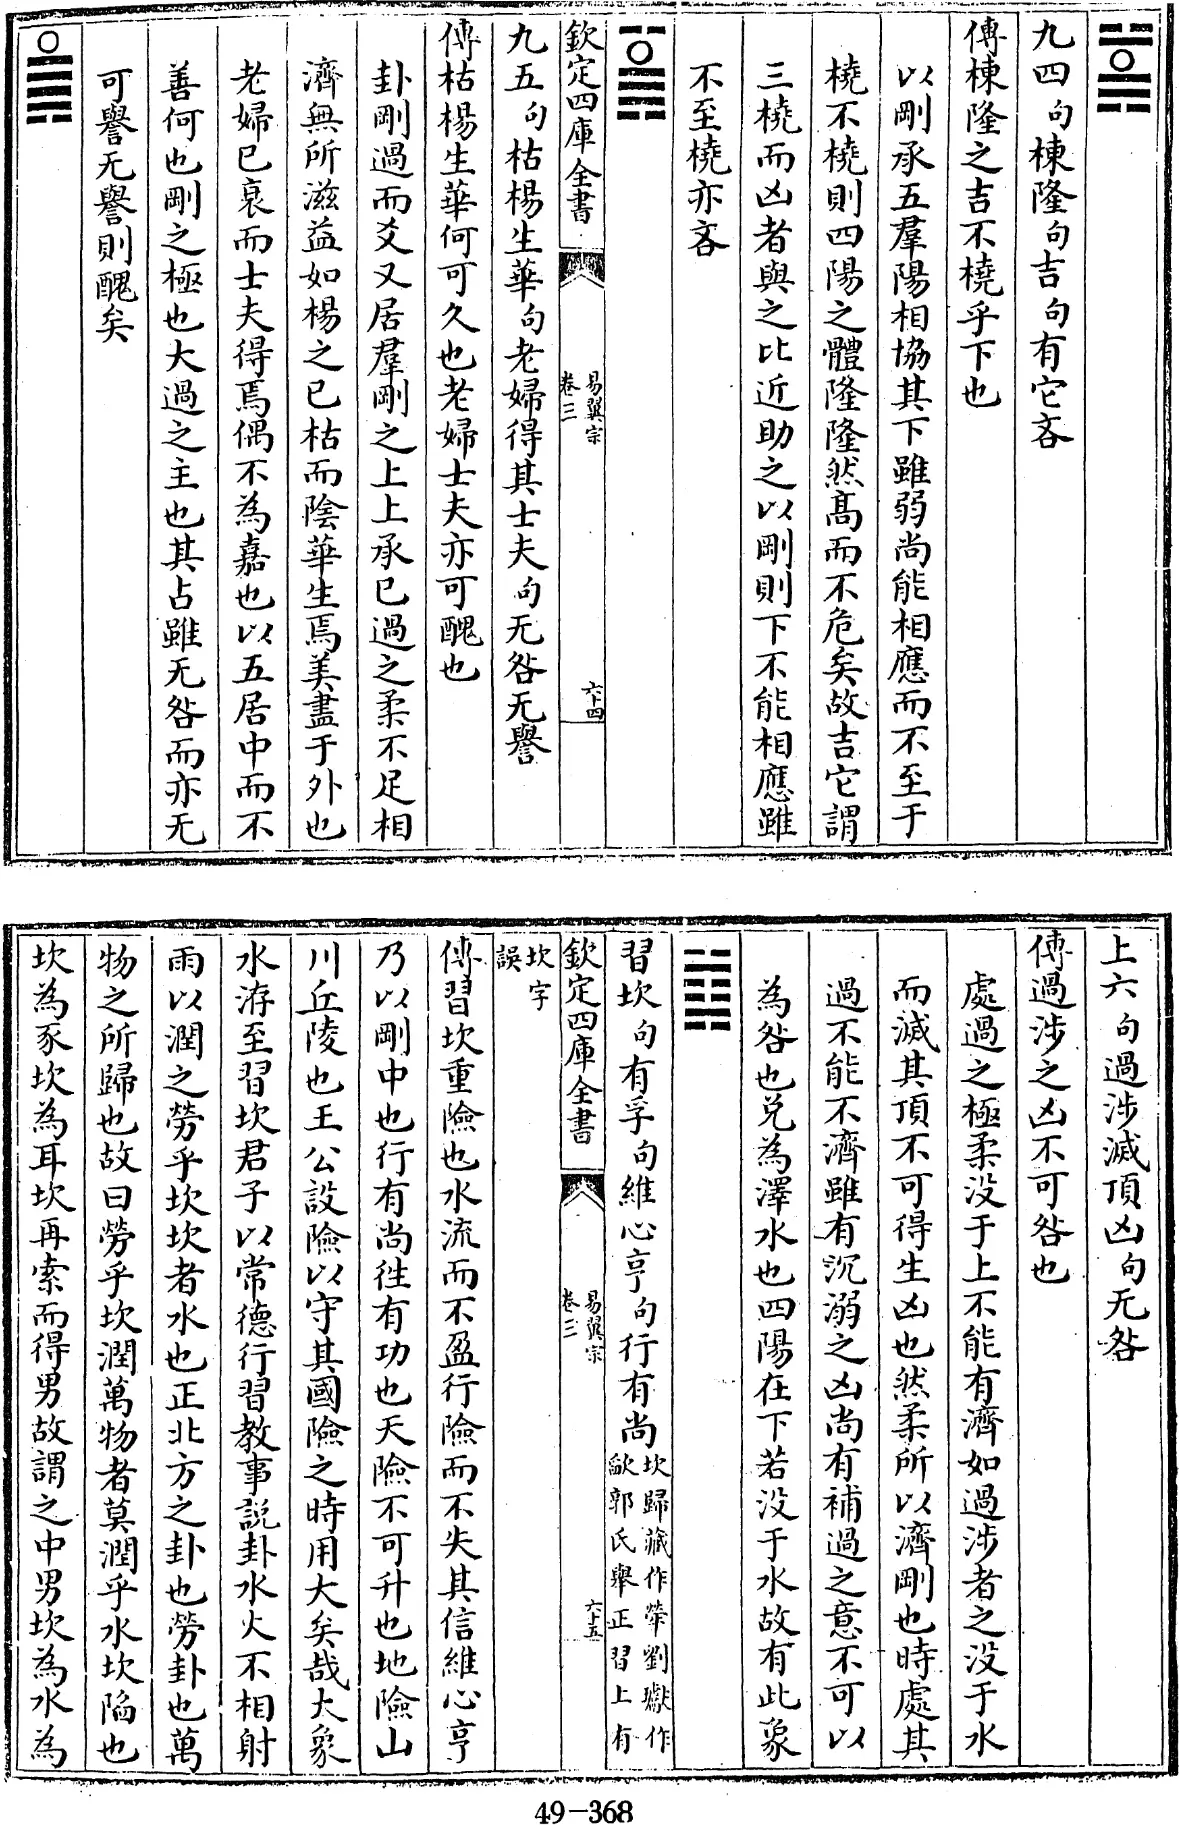 九四句棟隆句吉句有它吝
傳棟隆之吉不橈乎下也
以剛承五羣陽相協其下雖弱尚能相應而不至于
橈不橈則四陽之體隆隆然髙而不危矣故吉它謂
三橈而凶者與之比近助之以剛則下不能相應雖
不至橈亦吝
欽定四庫全書
易翼宗
卷三
六十四
九五句枯楊生華句老婦得其士夫句无咎无譽
傳枯楊生華何可久也老婦士夫亦可醜也
卦剛過而爻又居羣剛之上上承已過之柔不足相
濟無所滋益如楊之已枯而陰華生焉美盡于外也
老婦已衰而士夫得焉偶不為嘉也以五居中而不
善何也剛之極也大過之主也其占雖无咎而亦无
可譽无譽則醜矣
上六句過涉滅頂凶句无咎
傳過涉之凶不可咎也
處過之極柔没于上不能有濟如過涉者之没于水
而滅其頂不可得生凶也然柔所以濟剛也時處其
過不能不濟雖有沉溺之凶尚有補過之意不可以
為咎也兌為澤水也四陽在下若没于水故有此象
習坎句有孚句維心亨句行有尚
坎歸藏作犖劉瓛作
欿郭氏舉正習上有
欽定四庫全書
易翼宗
卷三
六十五
坎字
誤
傳習坎重險也水流而不盈行險而不失其信維心亨
乃以剛中也行有尚徃有功也天險不可升也地險山
川丘陵也王公設險以守其國險之時用大矣哉大象
水洊至習坎君子以常德行習教事説卦水火不相射
雨以潤之勞乎坎坎者水也正北方之卦也勞卦也萬
物之所歸也故曰勞乎坎潤萬物者莫潤乎水坎陷也
坎為豕坎為耳坎再索而得男故謂之中男坎為水為
49-368